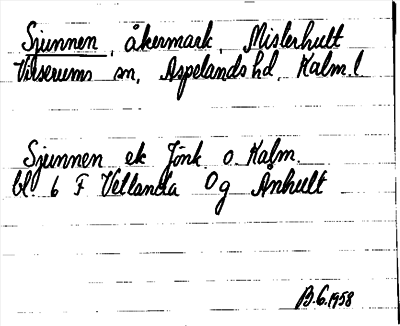 Sjunnen, åkermark, Misterhult
Virserums sn, Aspelands hd, Kalm. l
Sjunnen ek Jönk o Kalm.
bl. 6 F Vetlanda Og Ånhult
B.G. 1958